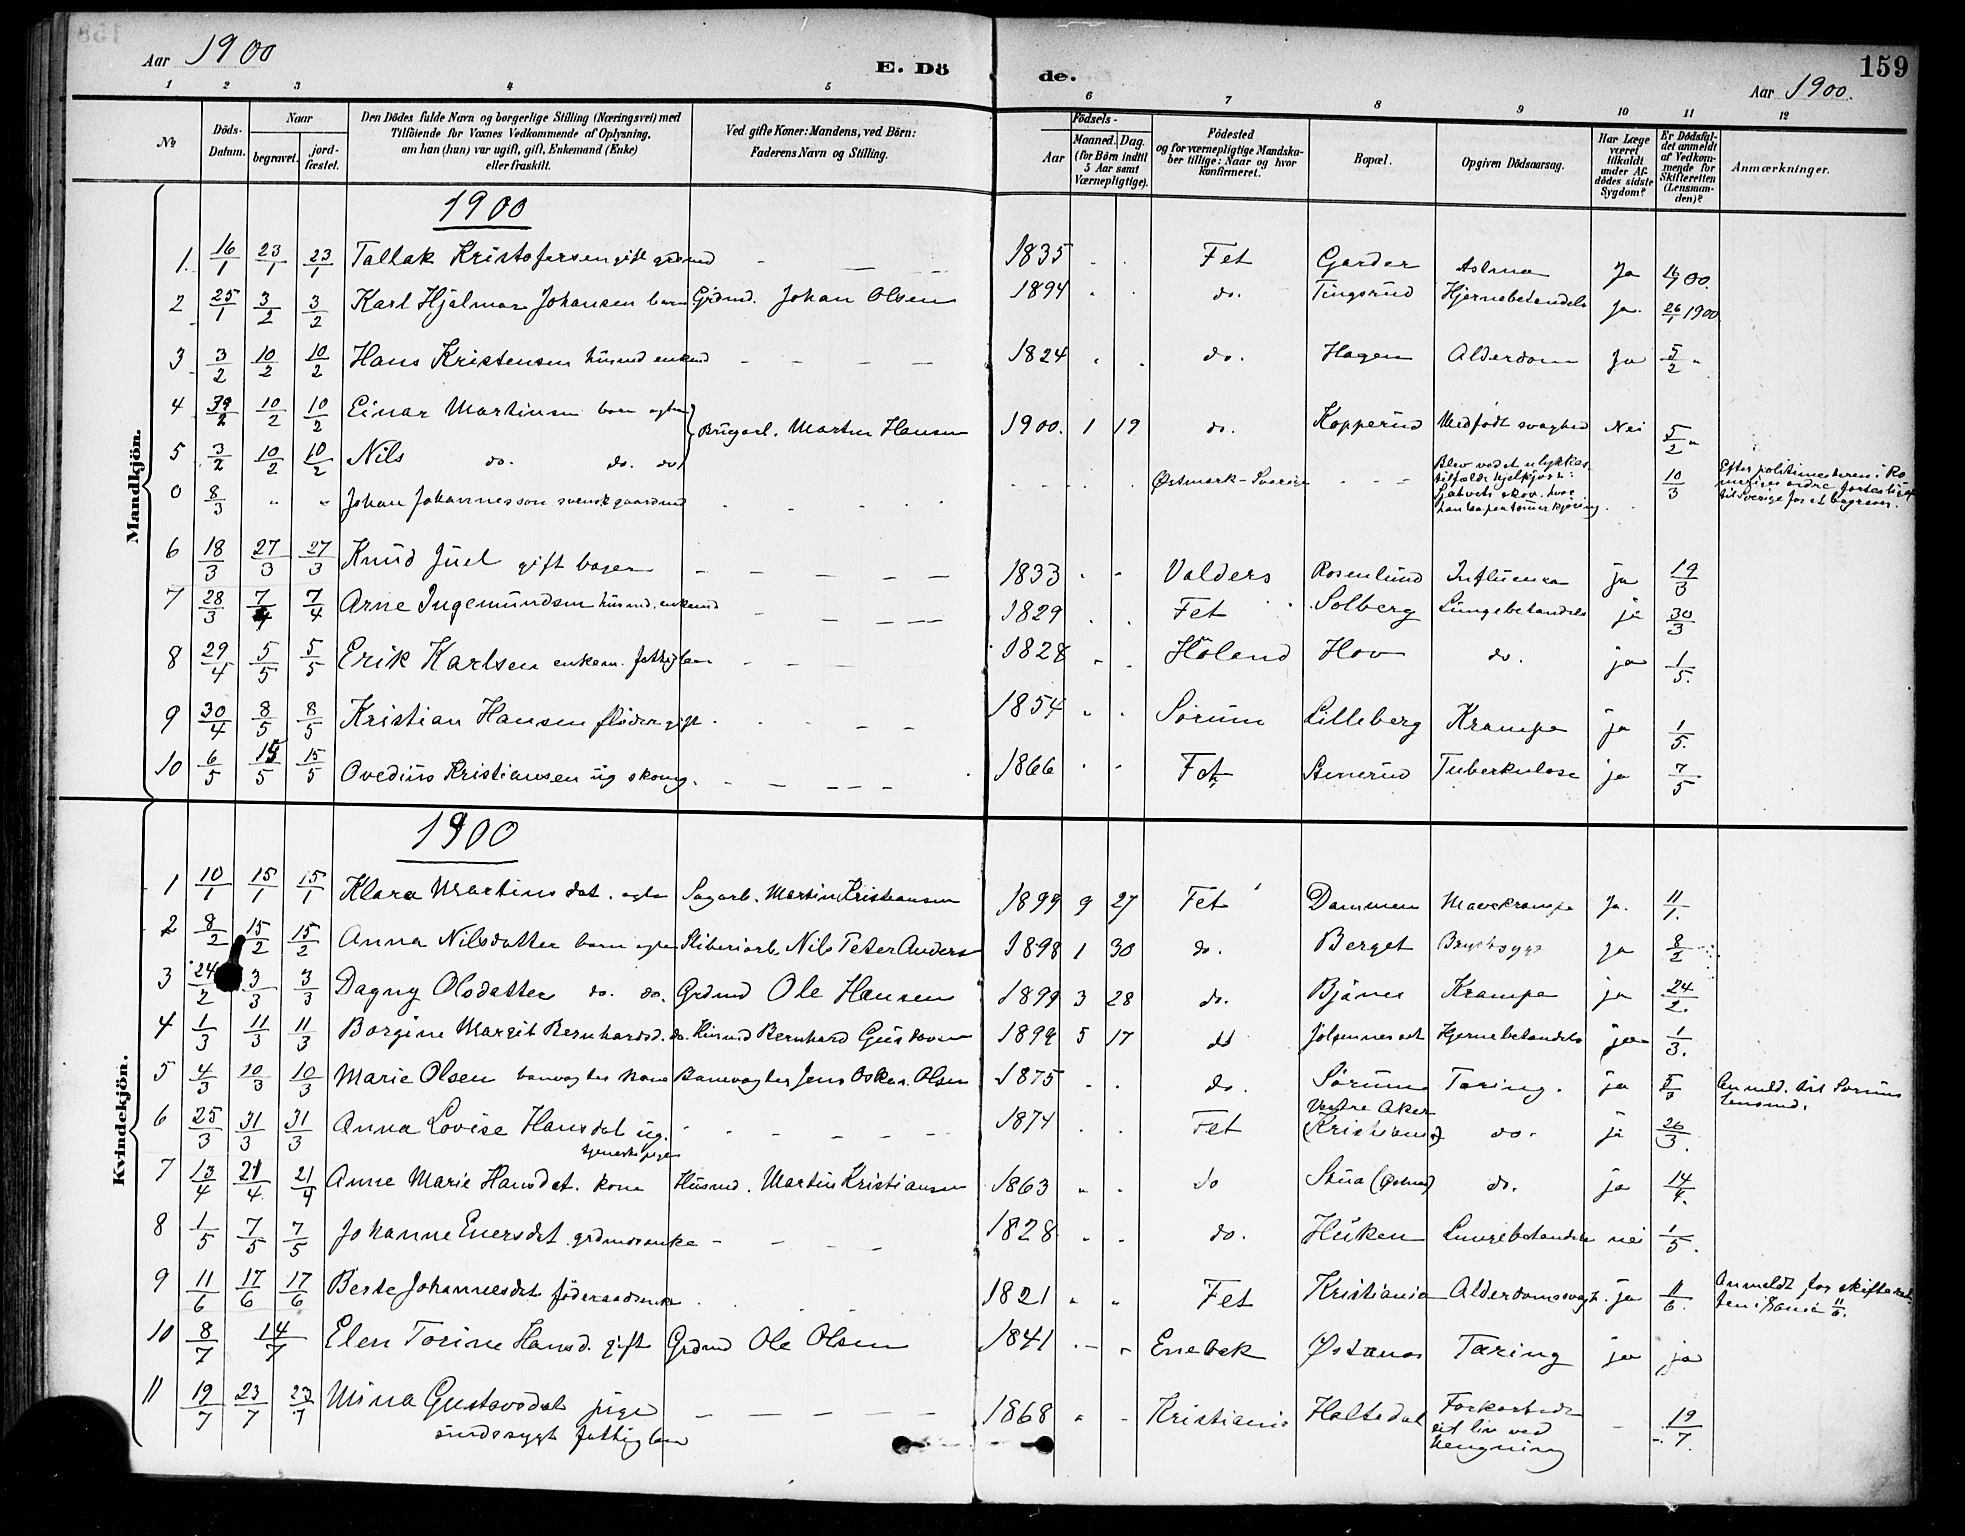 Aar 1900
E. Dö
de.
159
Aar 1900.
1 2 3 4 5 6 7 8 9 10 11 12
№
Döds-Datum.
Naar
begravet.
jord-fæstet.
Den Dödes fulde Navn og borgerlige Stilling (Næringsvei) med
Tilföiende for Voxnes Vedkommende af Oplysning,
om han (hun) var ugift, gift, Enkemand (Enke)
eller fraskilt.
Ved gifte Koner: Mandens, ved Börn:
Faderens Navn og Stilling.
Födsels-
Aar
Maaned. Dag.
(for Börn indtil
5 Aar samt
Værnepligtige).
Födested
og for værnepligtige Mandska-
ber tillige: Naar og hvor
konfirmeret.
Bopæl.
Opgiven Dödsaarsag.
Har Læge
været
tilkaldt
under Af-
dödes sidste
Sygdom?
Er Dödsfal-
det anmeldt
af Vedkom-
mende for
Skifteretten
(Lensman-
den)?
Anmærkninger.
Mandkjön.
1900
1. 16/1 23/1 23/1 Tallak Kristofersen gift grdmd 1835 Fet Garder Astma Ja 16/1 00.
2 25/1 3/2 3/2 Karl Hjalmar Johansen barn Grdmd. Johan Olsen 1894 do. Tingsrud Hjernebetændels Ja. 26/1 1900
3 3/2 10/2 10/2 Hans Kristensen husmd enkmd 1824 do. Hagen Alderdom Ja 5/2 "
4 10/2 10/2 Einar Martinsen barn egte Brugarb. Martin Hansen 1900. 1 19 do. Kopperud Medfødt svaghed Nei 5/2 "
5 3/2 10/2 10/2 Nils do. do. do.
0 8/3 " " Johan Johannesson svensk gaardmd Østmark - Sverige Blev ved et ulykkes-
tilfælde
skov, hvor
10/3 Efter politimesteren i Ro-
merikes ordre
til Sverige for at begraves.
6 18/3 27/3 27/3 Knud Juel gift bager 1833 Valders Rosenlund Influenza ja 19/3
7 28/3 7/4 7/4 Arne Ingemundsen husmd. enkemd 1829 Fet Solberg Lungebetændels ja 30/3
8 29/4 5/5 5/5 Erik Karlsen enkem. fattiglem 1828 Høland Hov do. ja 1/5.
9 30/4 8/5 8/5 Kristian Hansen fløder gift 1854 Sørum Lilleberg Krampe ja 1/5.
10 6/5 15/5 15/5 Ovedius Kristiansen ug skomg. 1866 Fet Stenerud Tuberkulose ja 7/5
Kvindekjön.
1900
1 10/1 15/1 15/1 Klara Martinsdat. egte Sagarb. Martin Kristiansen 1899 9 27 Fet Dammen Mavekrampe Ja. 11/1.
2 8/2 15/2 15/2 Anna Nilsdatter barn egte Sliberiarb. Nils Peter Anders 1898 1 30 do. Berget Brystsyge ja 8/2
3 24/2 3/3 3/3 Dagny Olsdatter do. do. Grdmd Ole Hansen 1899 3 28 do. Bjånes Krampe ja 24/2.
4 1/3 11/3 11/3 Borgine Margit Bernhardsd. do. Husmd Bernhard Gustavsen 1899 5 17 do Hjernebetændels ja 1/3.
5 4/3 10/3 10/3 Marie Olsen banvogter kone Banevogter Jens Oskar Olsen 1875 do. Sørum Tæring. ja 5/3 Anmeld. til Sørums
lensmd.
6 25/3 31/3 31/3 Anna Lovise Hansdat ug.
tjenestepige
1874 Fet Vestre Aker
(Kristiania) do. ja 26/3.
7 13/4 21/4. 21/4 Anne Marie Hansdat. kone Husmd. Martin Kristiansen 1863 do Stua do. ja 14/4.
8 1/5 7/5 7/5 Johanne Enersdat. grdmdsenke 1828 do. Huken Lungebetændels nei 1/5.
9 11/6 17/6 17/6 Berte Johannesdat føderaadsenke 1821 Fet Kristiania Alderdomssvagh. ja 11/6. Anmeldt for skifteret-
ten i Kania 11/6.
10 8/7 14/7 Elen Torine Hansd. gift Grdmd Ole Olsen 1841 Enebak Østanes Tæring ja ja
11 19/7 23/7 23/7 Mina Gustavsdat pige
sindssygt fattiglem
1868 Kristiania Haltedal Forkortede
sit liv ved
hengning
19/7.